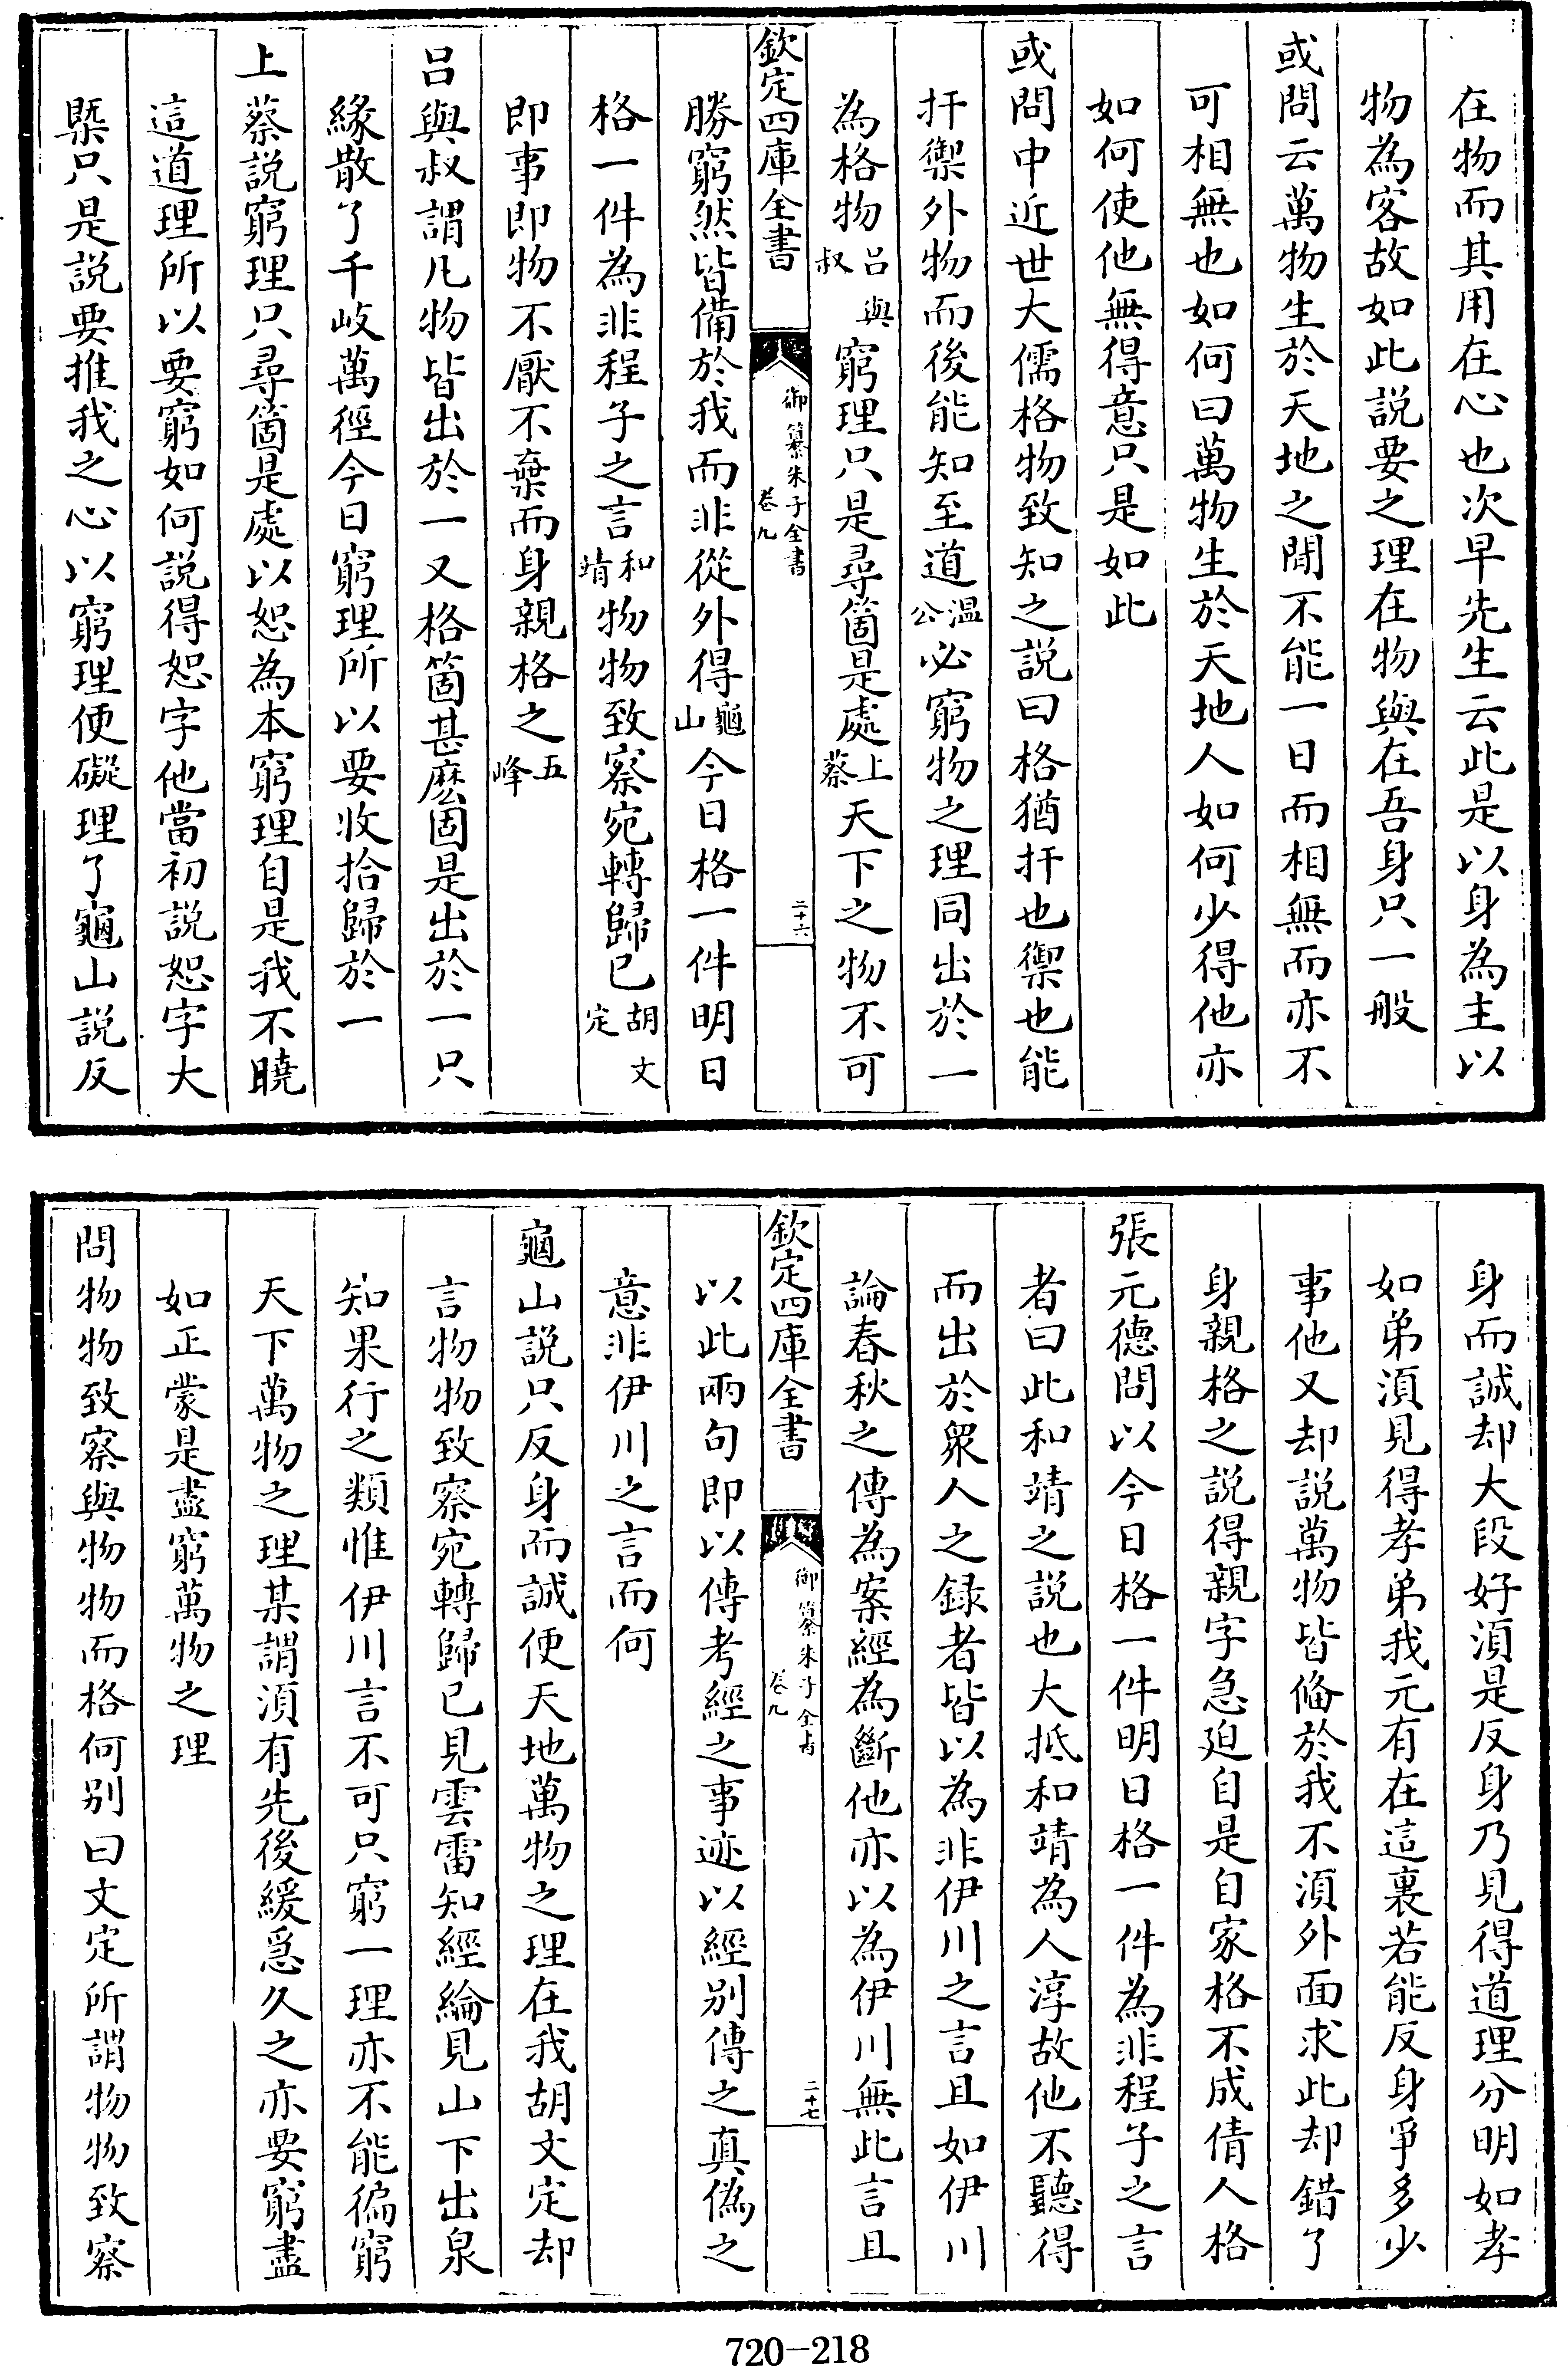 在物而其用在心也次早先生云此是以身為主以
物為客故如此説要之理在物與在吾身只一般
或問云萬物生於天地之間不能一日而相無而亦不
可相無也如何曰萬物生於天地人如何少得他亦
如何使他無得意只是如此
或問中近世大儒格物致知之説曰格猶扞也禦也能
扞禦外物而後能知至道溫公必窮物之理同出於一
為格物呂與叔窮理只是尋箇是處上蔡天下之物不可
欽定四庫全書
御纂朱子全書
卷九
二十六
勝窮然皆備於我而非從外得龜山今日格一件明日
格一件為非程子之言和靖物物致察宛轉歸已胡文定
即事即物不厭不棄而身親格之五峰
呂與叔謂凡物皆出於一又格箇甚麽固是出於一只
緣散了千岐萬徑今日窮理所以要收拾歸於一
上蔡説窮理只尋箇是處以恕為本窮理自是我不曉
這道理所以要窮如何説得恕字他當初説恕字大
槩只是説要推我之心以窮理便礙理了龜山説反
身而誠却大段好須是反身乃見得道理分明如孝
如弟須見得孝弟我元有在這裏若能反身爭多少
事他又却説萬物皆備於我不須外面求此却錯了
身親格之説得親字急迫自是自家格不成倩人格
張元德問以今日格一件明日格一件為非程子之言
者曰此和靖之説也大抵和靖為人淳故他不聽得
而出於衆人之録者皆以為非伊川之言且如伊川
論春秋之傳為案經為斷他亦以為伊川無此言且
欽定四庫全書
御纂朱子全書
卷九
二十七
以此兩句即以傳考經之事迹以經别傳之真偽之
意非伊川之言而何
龜山説只反身而誠便天地萬物之理在我胡文定却
言物物致察宛轉歸已見雲雷知經綸見山下出泉
知果行之類惟伊川言不可只窮一理亦不能徧窮
天下萬物之理某謂須有先後緩急久之亦要窮盡
如正蒙是盡窮萬物之理
問物物致察與物物而格何别曰文定所謂物物致察
720-218